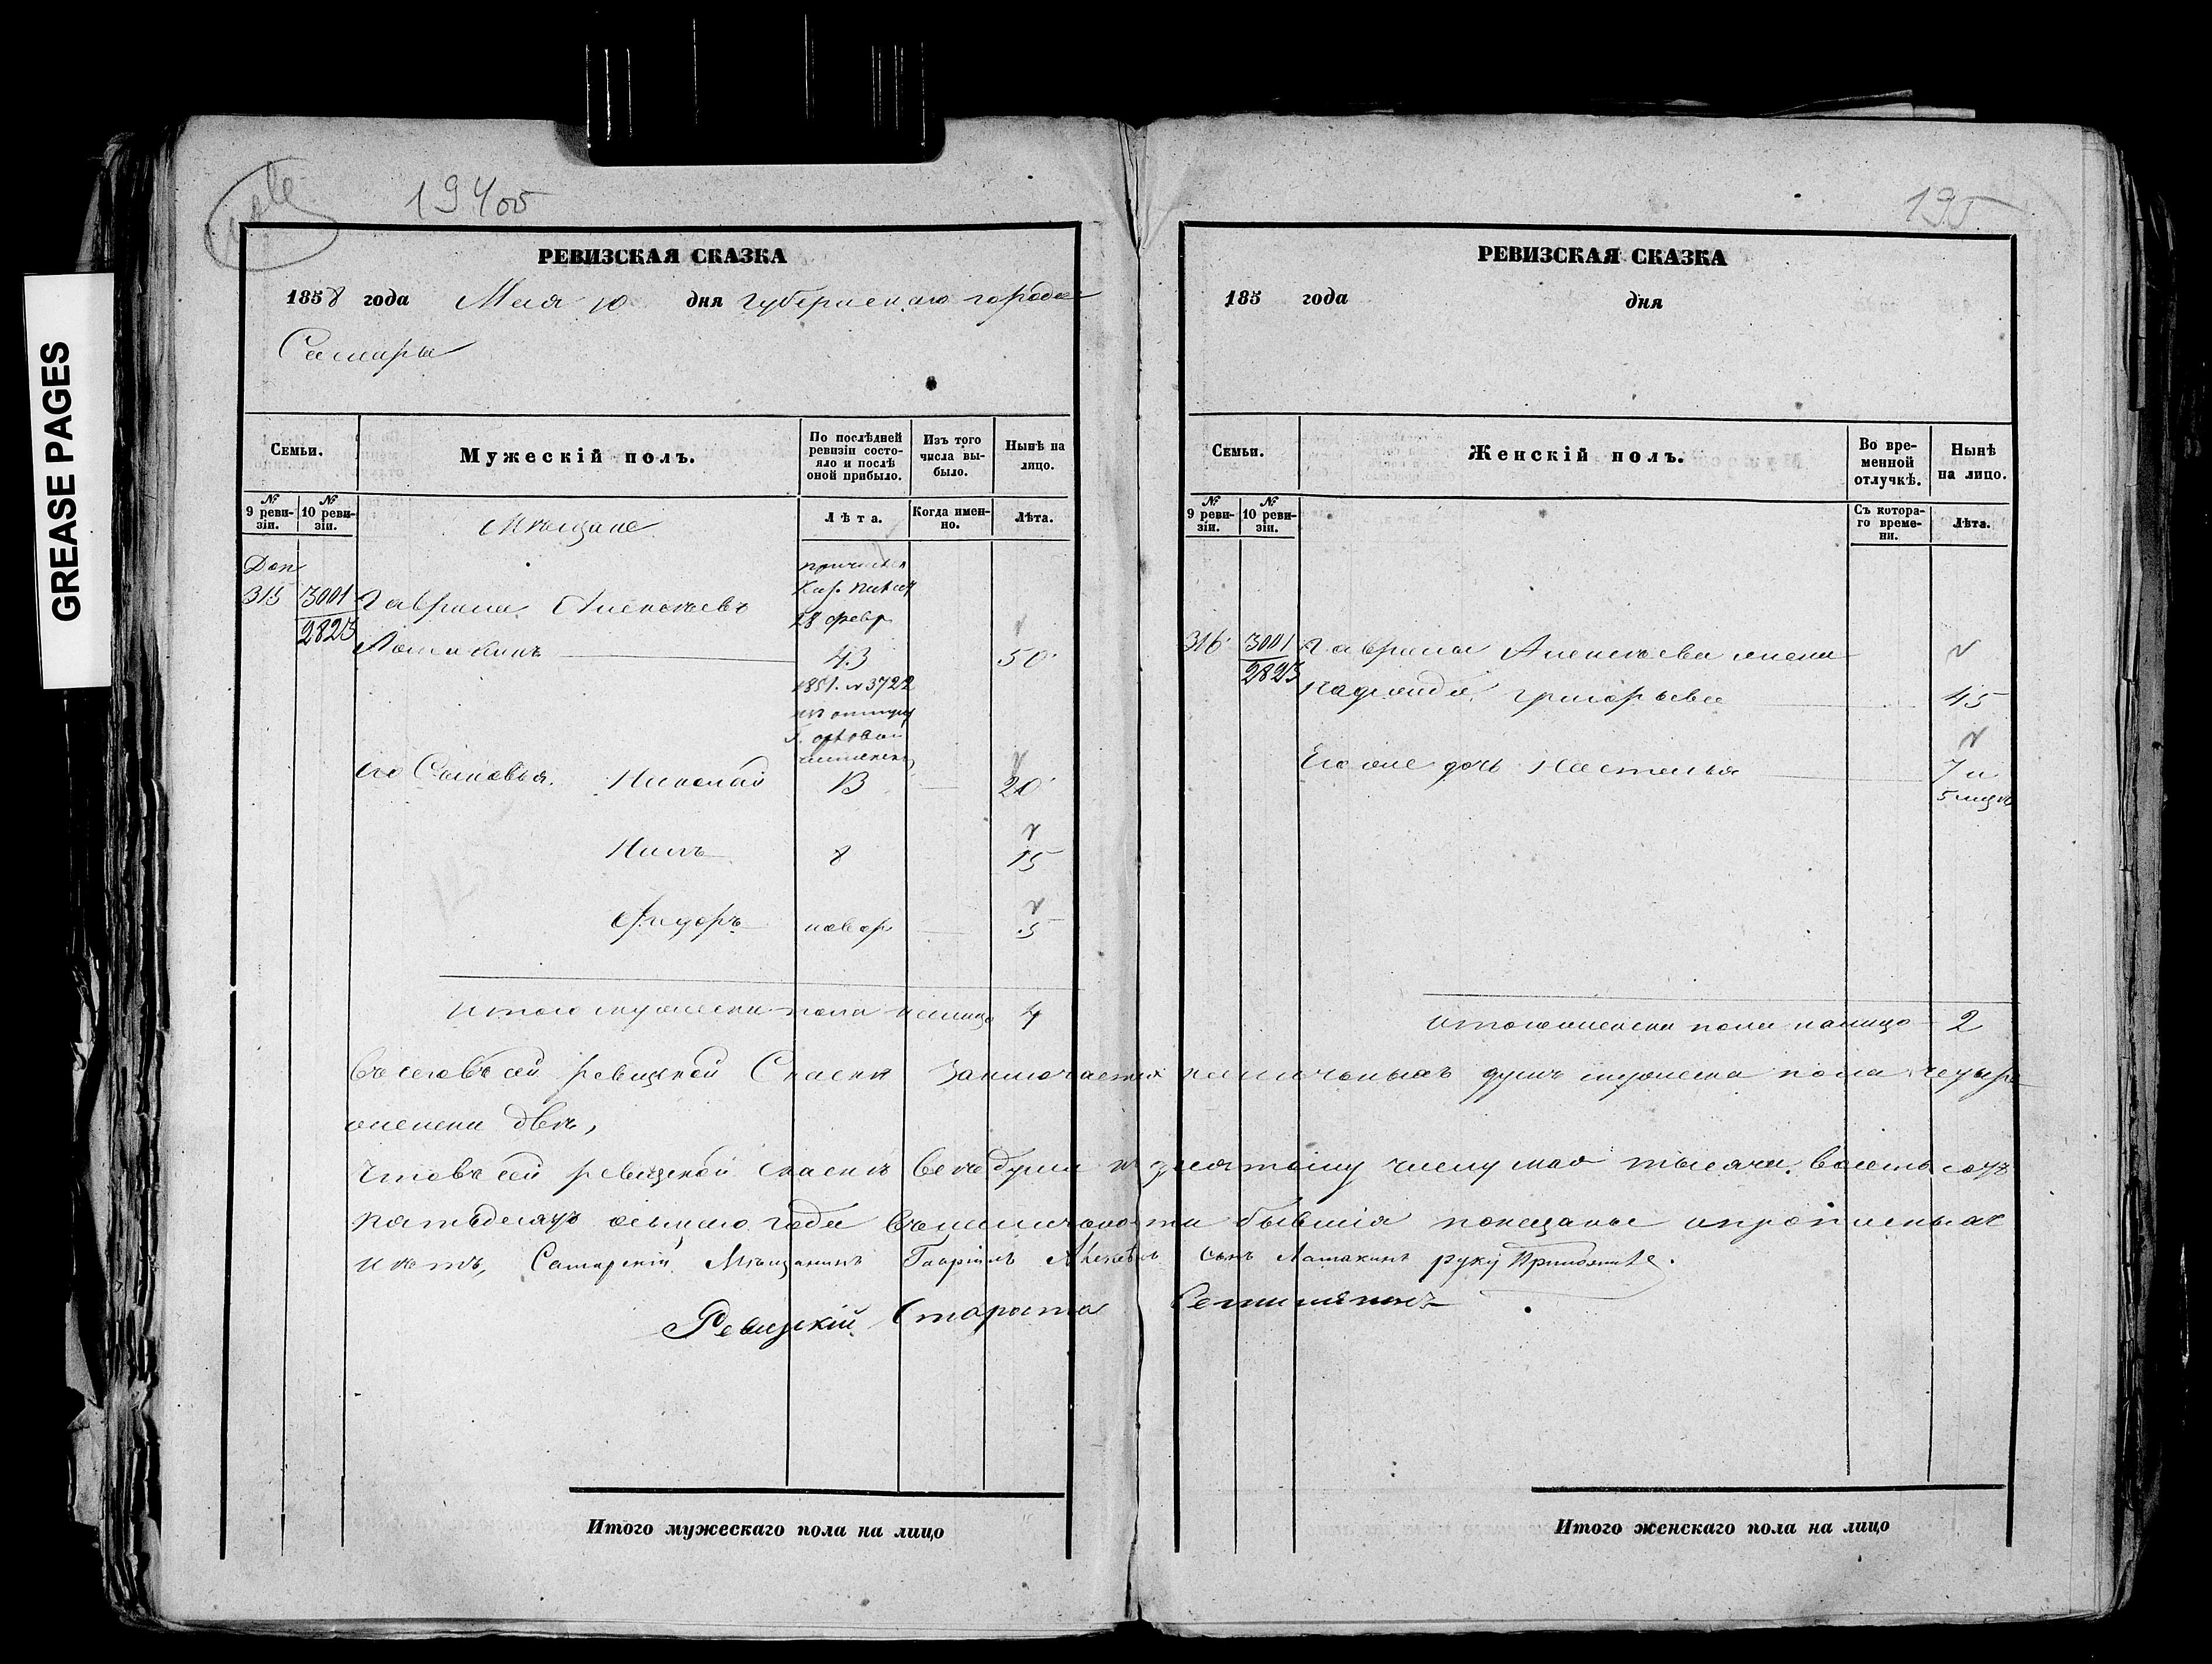 GREASE PAGES
194об
РЕВИЗСКАЯ СКАЗКА
1858 года Мая 10 дня губернскаго города
Самары
Семьи.
Мужескій полъ.
По послѣдней ревизіи состояло и послѣ оной прибыло.
Изъ того числа выбыло.
Нынѣ на лицо.
№ 9 ревизіи.
№ 10 ревизіи.
Мѣщане
Лѣта.
Когда именно.
Лѣта.
Доп
315 3001 Гаврила Алексѣевъ
28 февр
2823 Лотакинъ 43 50
1851. № 3722
его Сыновья. Николай 13 20
Нилъ 8 15
Фидоръ новор 5
Итого мужеска пола налицо 4
195
РЕВИЗСКАЯ СКАЗКА
185 года дня
Семьи.
Женскій полъ.
Во временной отлучкѣ.
Нынѣ на лицо.
№ 9 ревизіи.
№ 10 ревизіи.
Съ котораго времени.
Лѣта.
316 3001 Гаврилы Алексѣева жена
2823 Григорьева 45
Его же дочь Настасья 7 и
5 мцвъ
Итого женска пола налицо 2
Въ сей ревизской Сказки Заключается наличныхъ душъ мужеска пола четыре
женска двѣ,
Что въ сей ревизской сказкѣ всѣ души къ десятому числу мая тысяча восемьсотъ
пятьдесятъ осьмаго года въ наличности бывшія показаны и прописныхъ
нѣтъ, Самарскій Мѣщанинъ Гаврiилъ Алексѣевъ сынъ Латакинъ руку Приложилъ.
Ревизскій Староста
Итого мужескаго пола на лицо
Итого женскаго пола на лицо